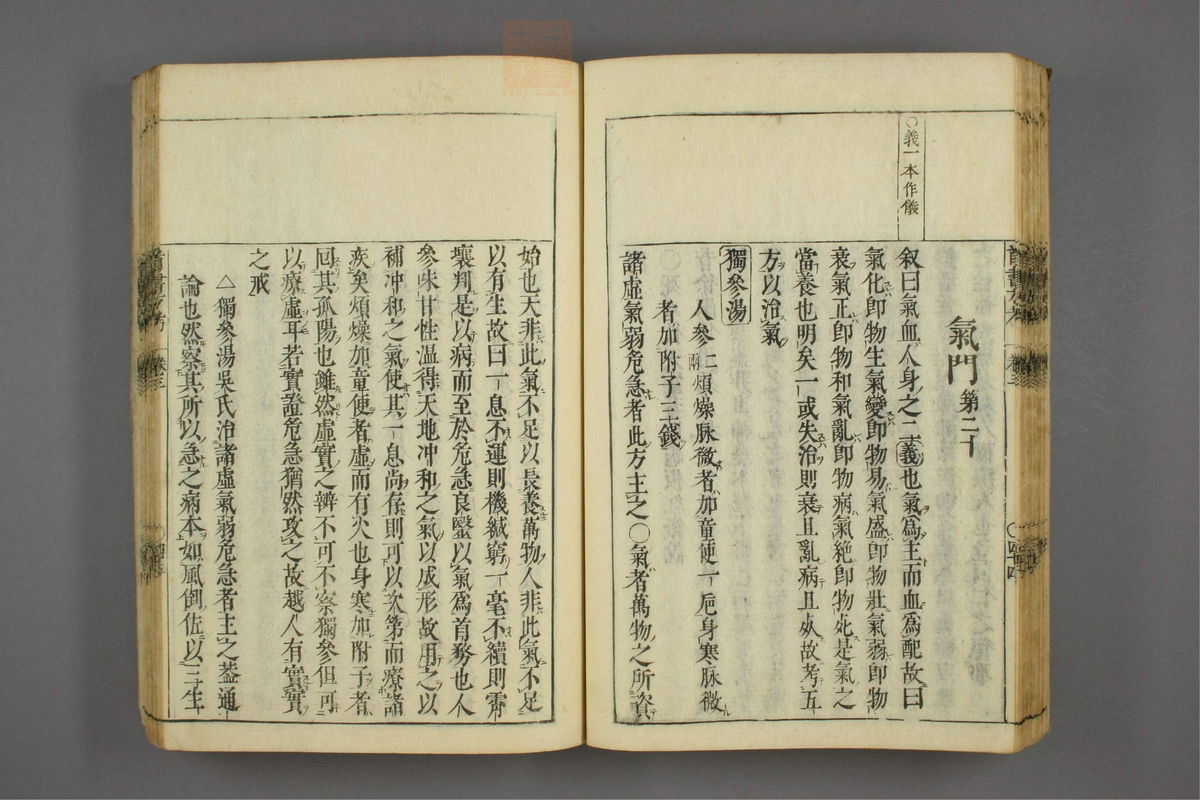 ○義一本作儀
氣門 第二十
叙曰氣血人身之二義也氣爲主而血爲配故曰
氣化卽物生氣變卽物易氣盛卽物壯氣弱卽物
衰氣正卽物和氣亂卽物病氣絶卽物死是氣之
當養也明矣一或失治則衰且亂病且死故考五
方以治氣
獨參湯
人參二兩煩燥脉微者加童便一巵身寒脉微
者加附子三錢
諸虛氣弱危急者此方主之○氣者萬物之所資
始也天非此氣不足以長養萬物人非此氣不足
以有生故曰一息不運則機緘窮一毫不續則霄
壤判是以病而至於危急良毉以氣爲首務也人
參味甘性溫得天地冲和之氣以成形故用之以
補冲和之氣使其一息尚存則可以次第而療諸
疾矣煩燥加童便者虛而有火也身寒加附子者
囘其孤陽也雖然虛實之辨不可不察獨參但可
以療虛耳若實證危急猶然攻之故越人有實實
之戒
△獨參湯吳氏治諸虛氣弱危急者主之葢通
論也然察其所以急之病本如風倒佐以三生